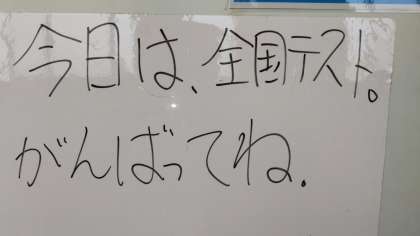 今日は、全国テスト。
がんばってね.